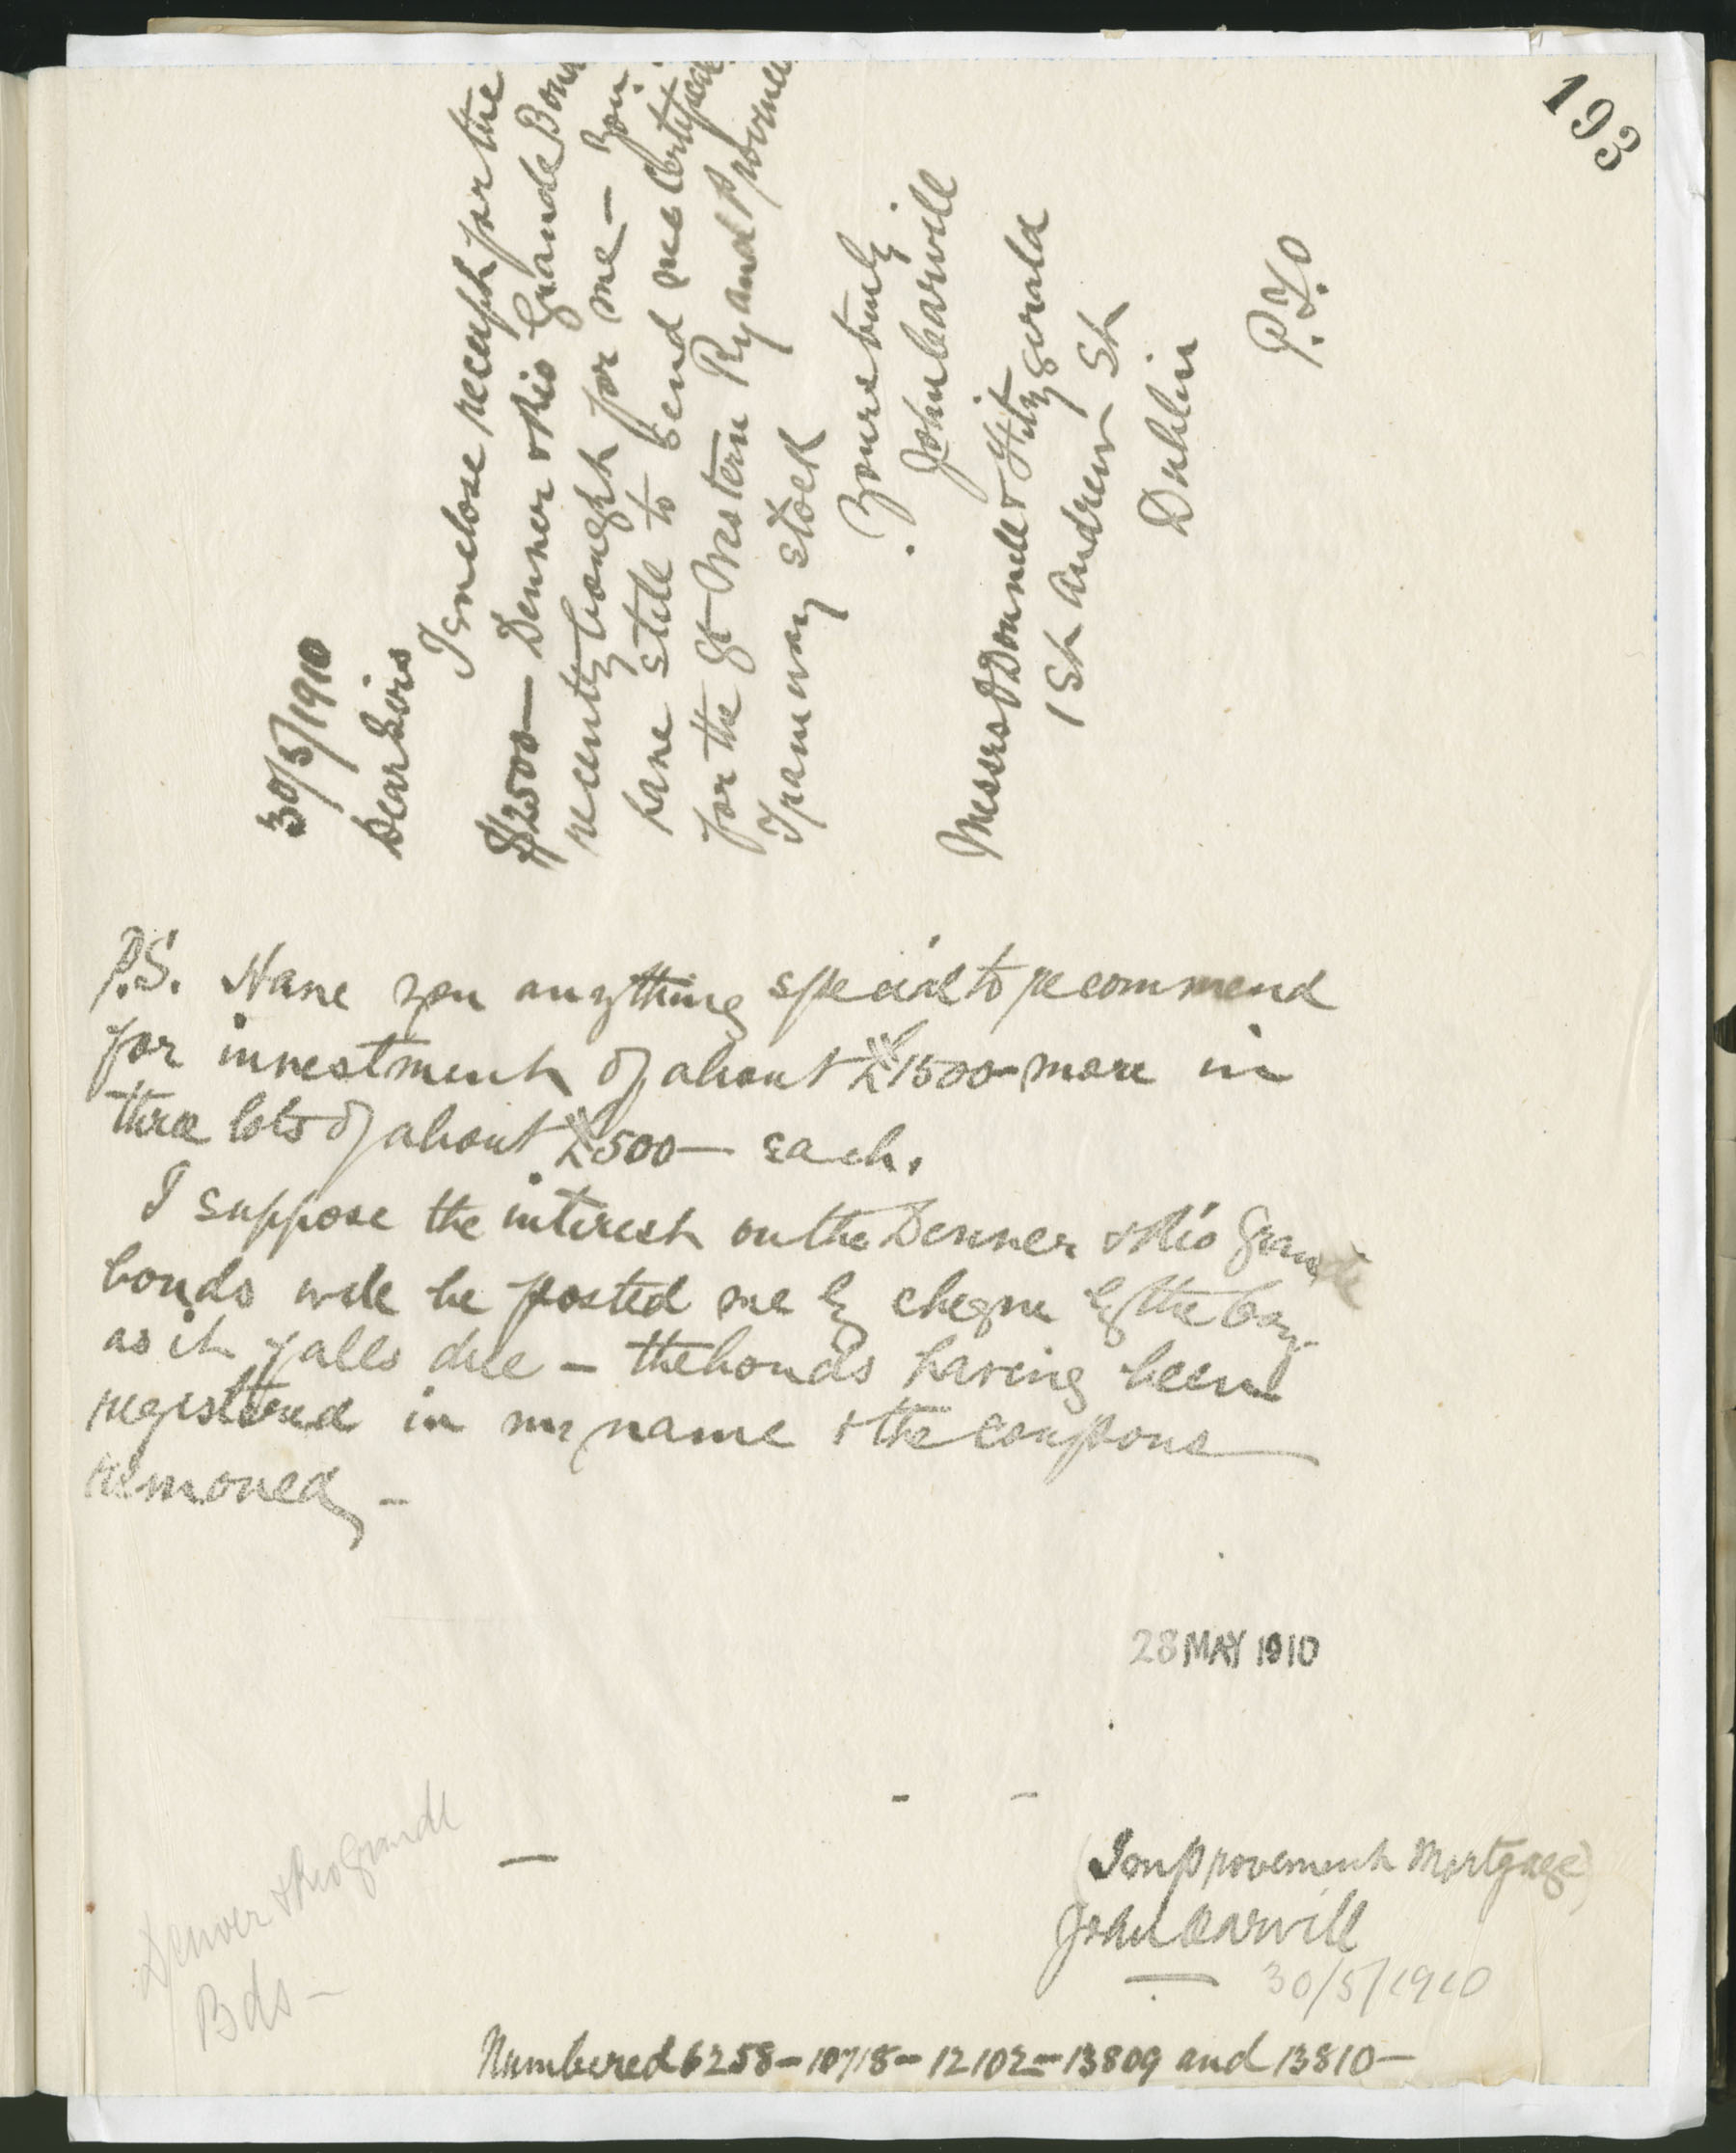 193
30/5/1910
Dear Sirs
I enclose receipt for the
$2500— Denver & Rio Grande Bonds
recently bought for me — You
have still to send me Certificate
for the Gt Western Ry and Improvement
Tramway Stock
Yours truly
John Carvill
Messrs O'Donnell & Fitzgerald
1 St Andrew St
Dublin
P.T.O
P.S. Have you anything special to recommend
for investment of about £1500 more in
three lots of about £500— each.
I suppose the interest on the Denver & Rio Grande
bonds will be posted me by cheque by the Coy.
as it falls due — the bonds having been
registered in my name & the coupons
removed —
28 MAY 1910
(Improvement Mortgage)
John Carvill
30/5/1910
Denver & Rio Grande
Bds —
Numbered 6258 — 10718 — 12102 — 13809 and 13810 —